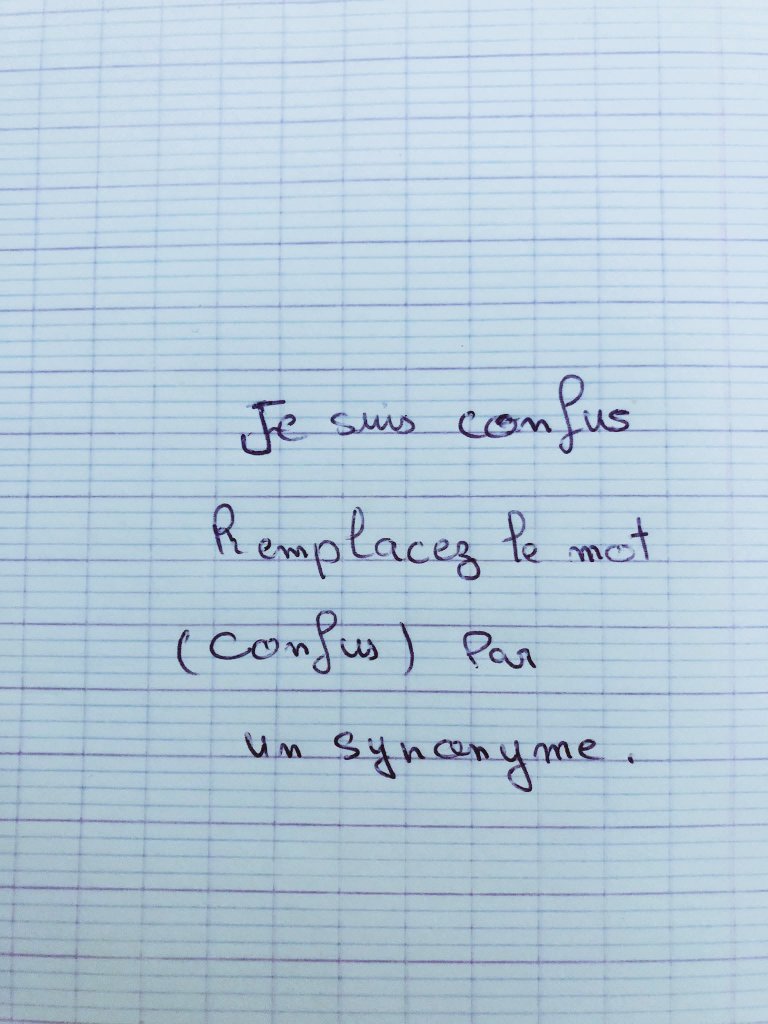 Je suis confus
Remplacez le mot
(Confus) Par
un synonyme.